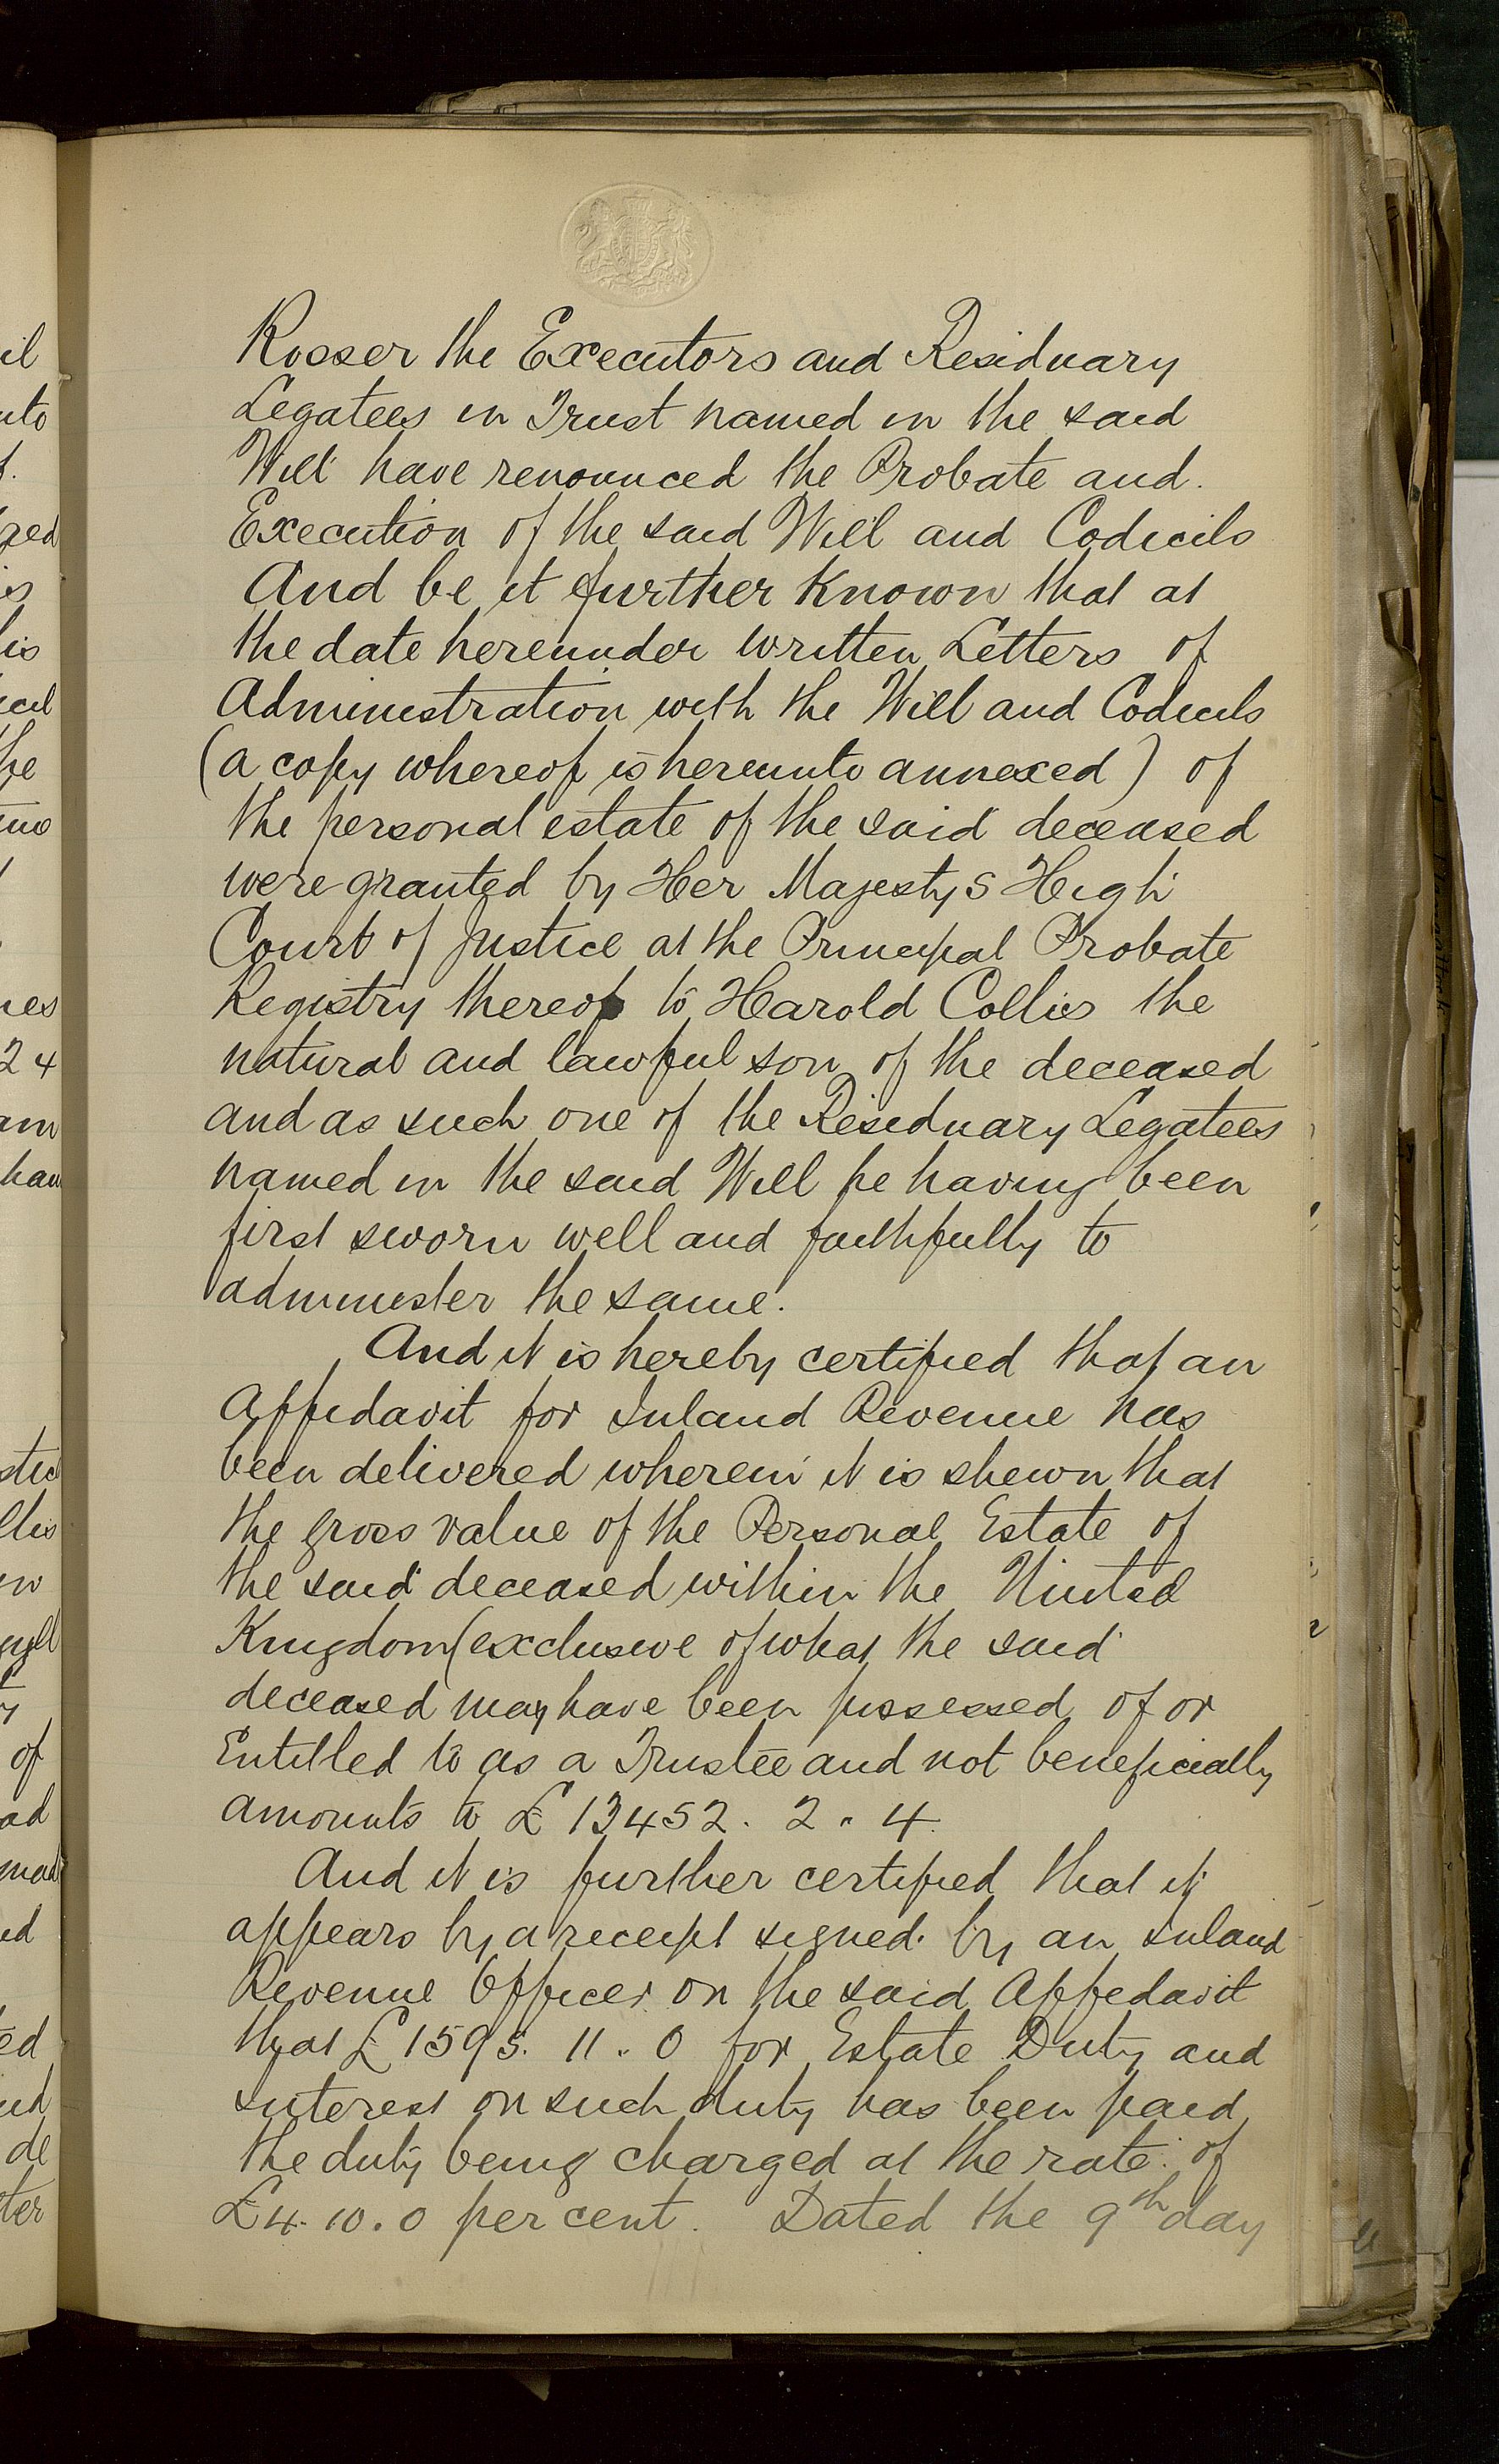 Rosser the Executors and Residuary
Legatees in Trust named in the said
Will have renounced the Probate and
Execution of the said Will and Codicils
And be it further known that at
the date hereunder written Letters of
Administration with the Will and Codicils
(a copy whereof is hereunto annexed) of
the personal estate of the said deceased
were granted by Her Majestys High
Court of Justice at the Principal Probate
Registry thereof to Harold Collis the
natural and lawful son of the deceased
and as such one of the Residuary Legatees
named in the said Will he having been
first sworn well and faithfully to
administer the same.
And it is hereby certified that an
Affidavit for Inland Revenue has
been delivered wherein it is shewn that
the gross value of the Personal Estate of
the said deceased within the United
Kingdom (exclusive of what the said
deceased may have been possessed of or
Entitled to as a Trustee and not beneficially
amounts to £13452. 2. 4
And it is further certified that it
appears by a receipt signed by an Inland
Revenue Officer on the said Affidavit
that £1595. 11. 0 for Estate Duty and
interest on such duty has been paid
the duty being charged at the rate of
£4. 10. 0 per cent. Dated the 9th day